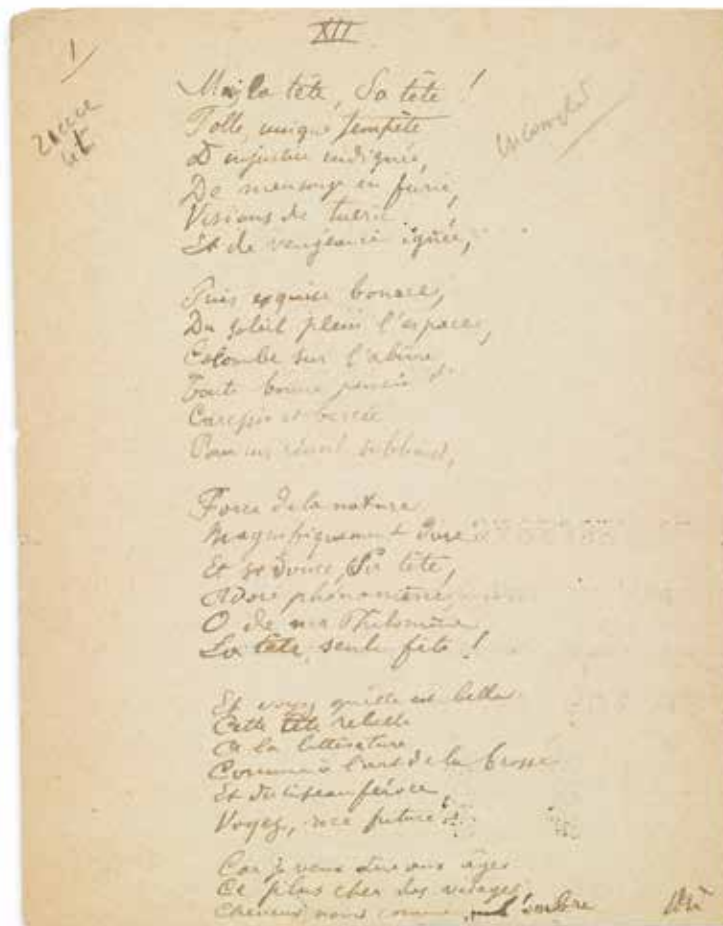 XII
1
Mais la tête, Sa tête !
Folle, unique tempête
D'injustice indignée,
De mensonge en furie,
Visions de tuerie
Et de vengeance ignée,
Puis exquise bonace,
Du soleil plein l'espace,
Colombe sur l'abîme
Toute bonne pensée
Caressée et bercée
Pour un réveil sublime,
Force de la nature
Magnifiquement dure
Et si douce, Sa tête,
Adoré phénomène
O de ma Philomène
La tête, seule fête !
Et voyez qu'elle est belle
Cette tête rebelle
A la littérature
Comme à l'art de la brosse
Et du ciseau féroce,
Voyez, race future !
Car je veux dire aux âges
Ce plus cher des visages
Cheveux noirs comme l'ombre